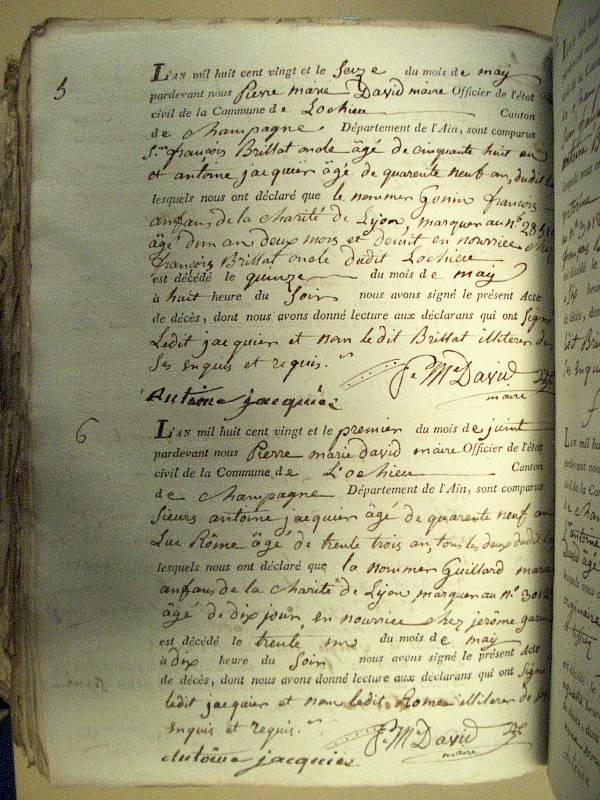 5
L'AN mil huit cent vingt et le Seize du mois de may
pardevant nous pierre marie David maire Officier de l'état
civil de la Commune de Lochieu Canton
de champagne Département de l'Ain, sont comparus
Sr. françois Brillat oncle âgé de cinquante huit an
et antoine jacquier âgé de quarente neuf an, dudit
lesquels nous ont déclaré que le nommer Gonin françois
anfans de la charité de Lyon, marquer au n.o
âgé dun an deux mois et demit en nourrice
françois Brillat oncle dudit Lochieu
est décédé le quinze du mois de may
à huit heure du Soir nous avons signé le présent Acte
de décès, dont nous avons donné lecture aux déclarans qui ont Signé
Ledit jacquier et nom ledit Brillat illiterer de
Ses enquis et requis.
Pre Mie David
maire
Antoine jacquier
6
L'AN mil huit cent vingt et le premier du mois de juint
pardevant nous pierre marie david maire Officier de l'état
civil de la Commune de Lochieu Canton
de champagne Département de l'Ain, sont comparus
Sieurs antoine jacquier âgé de quarente neuf an
Luc Rôme âgé de trente trois an, tous les deux dudit
lesquels nous ont déclaré que la nommer Guillard marie
anfans de la charité de Lyon, marquer au n.o
âgé de dix jour, en nourrice chez jerôme
est décédé le trente un du mois de may
à dix heure du Soir nous avons signé le présent Acte
de décès, dont nous avons donné lecture aux déclarans qui ont Signé
ledit jacquier et nom ledit Rome illiterer de
enquis et requis.
Pre Mie David
maire
antoine jacquier